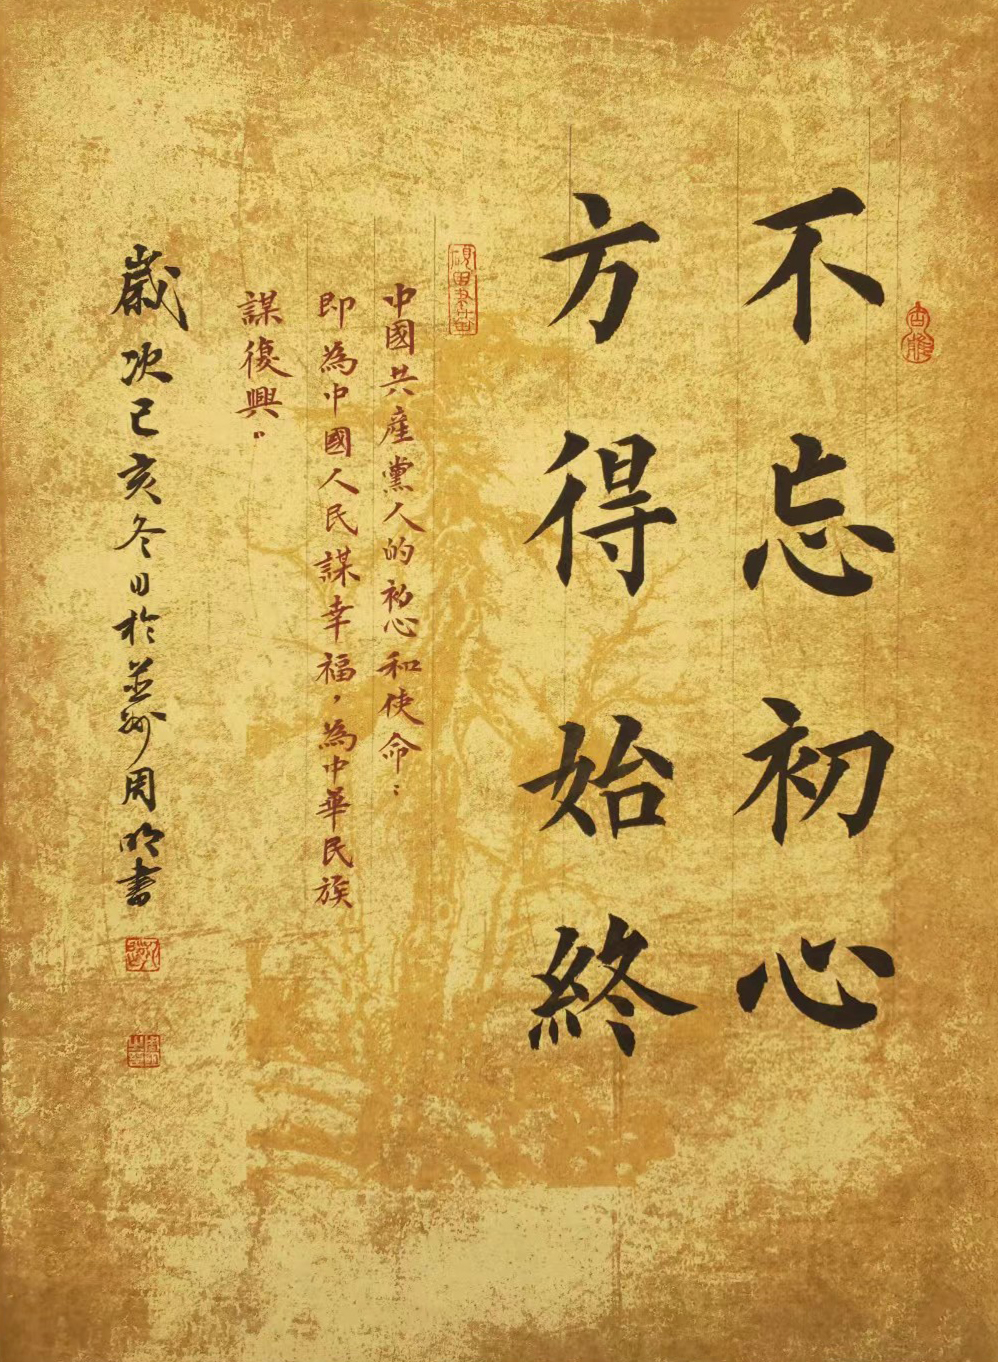 不忘初心
方得始終
中國共產黨人的初心和使命：
即為中國人民謀幸福，為中華民族
謀復興。
歲次己亥冬日於並州周明書